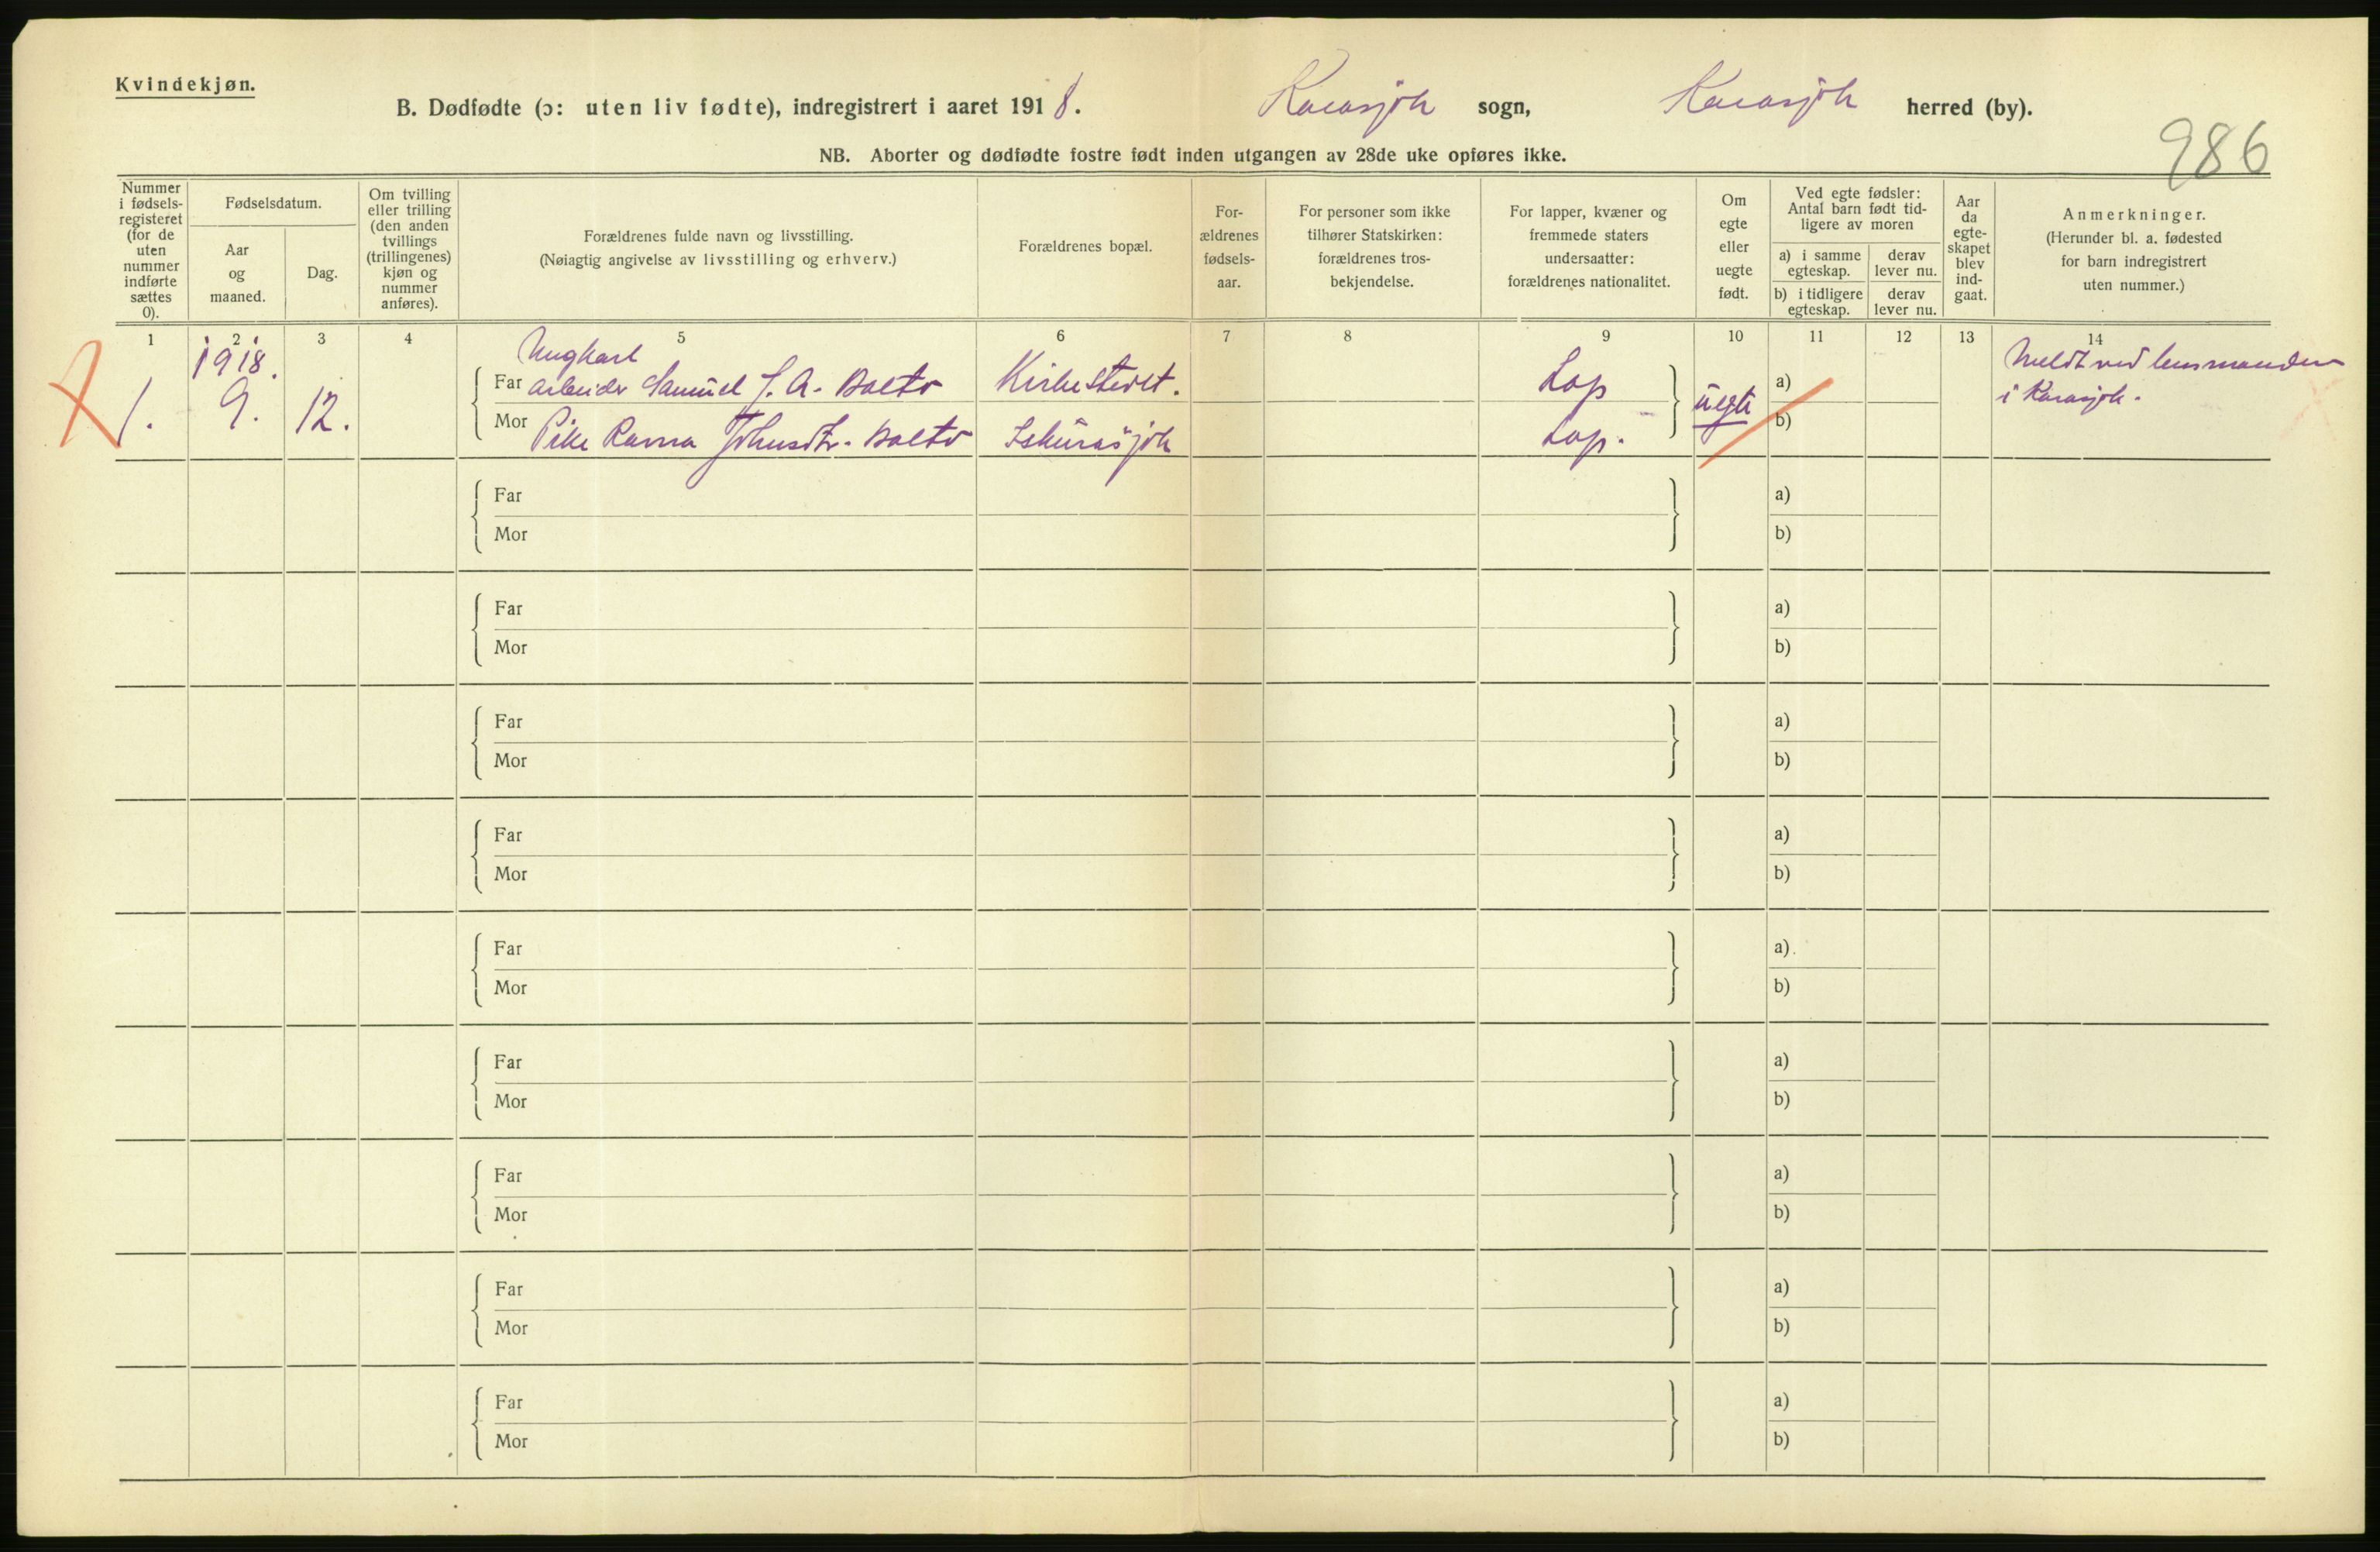 Kvindekjøn.
B. Dødfødte (ɔ: uten liv fødte), indregistrert i aaret 1918. Karasjok sogn, Karasjok herred (by).
986
NB. Aborter og dødfødte fostre født inden utgangen av 28de uke opføres ikke.
Nummer i fødsels-registeret (for de uten nummer indførte sættes 0).
Fødselsdatum.
Aar og maaned.
Dag.
Om tvilling eller trilling (den anden tvillings (trillingenes) kjøn og nummer anføres).
Forældrenes fulde navn og livsstilling.
(Nøiagtig angivelse av livsstilling og erhverv.)
Forældrenes bopæl.
For-ældrenes fødsels-aar.
For personer som ikke tilhører Statskirken: forældrenes tros-bekjendelse.
For lapper, kvæner og fremmede staters undersaatter: forældrenes nationalitet.
Om egte eller uegte født.
Ved egte fødsler: Antal barn født tid-ligere av moren
a) i samme egteskap.
derav lever nu.
b) i tidligere egteskap.
derav lever nu.
Aar da egte-skapet blev ind-gaat.
Anmerkninger.
(Herunder bl. a. fødested for barn indregistrert uten nummer.)
1 2 3 4 5 6 7 8 9 10 11 12 13 14
1918.
Ungkarl
Far arbeider Samuel J. A. Balto Kirkestedet. Lap a) Meldt ved lensmanden
1. 9. 12. uegte i Karasjok.
Mor Pike Ravna Johnsdtr. Balto Iskurasjok Lap. b)
Far a)
Mor b)
Far a)
Mor b)
Far a)
Mor b)
Far a)
Mor b)
Far a)
Mor b)
Far a)
Mor b)
Far a)
Mor b)
Far a)
Mor b)
Far a)
Mor b)